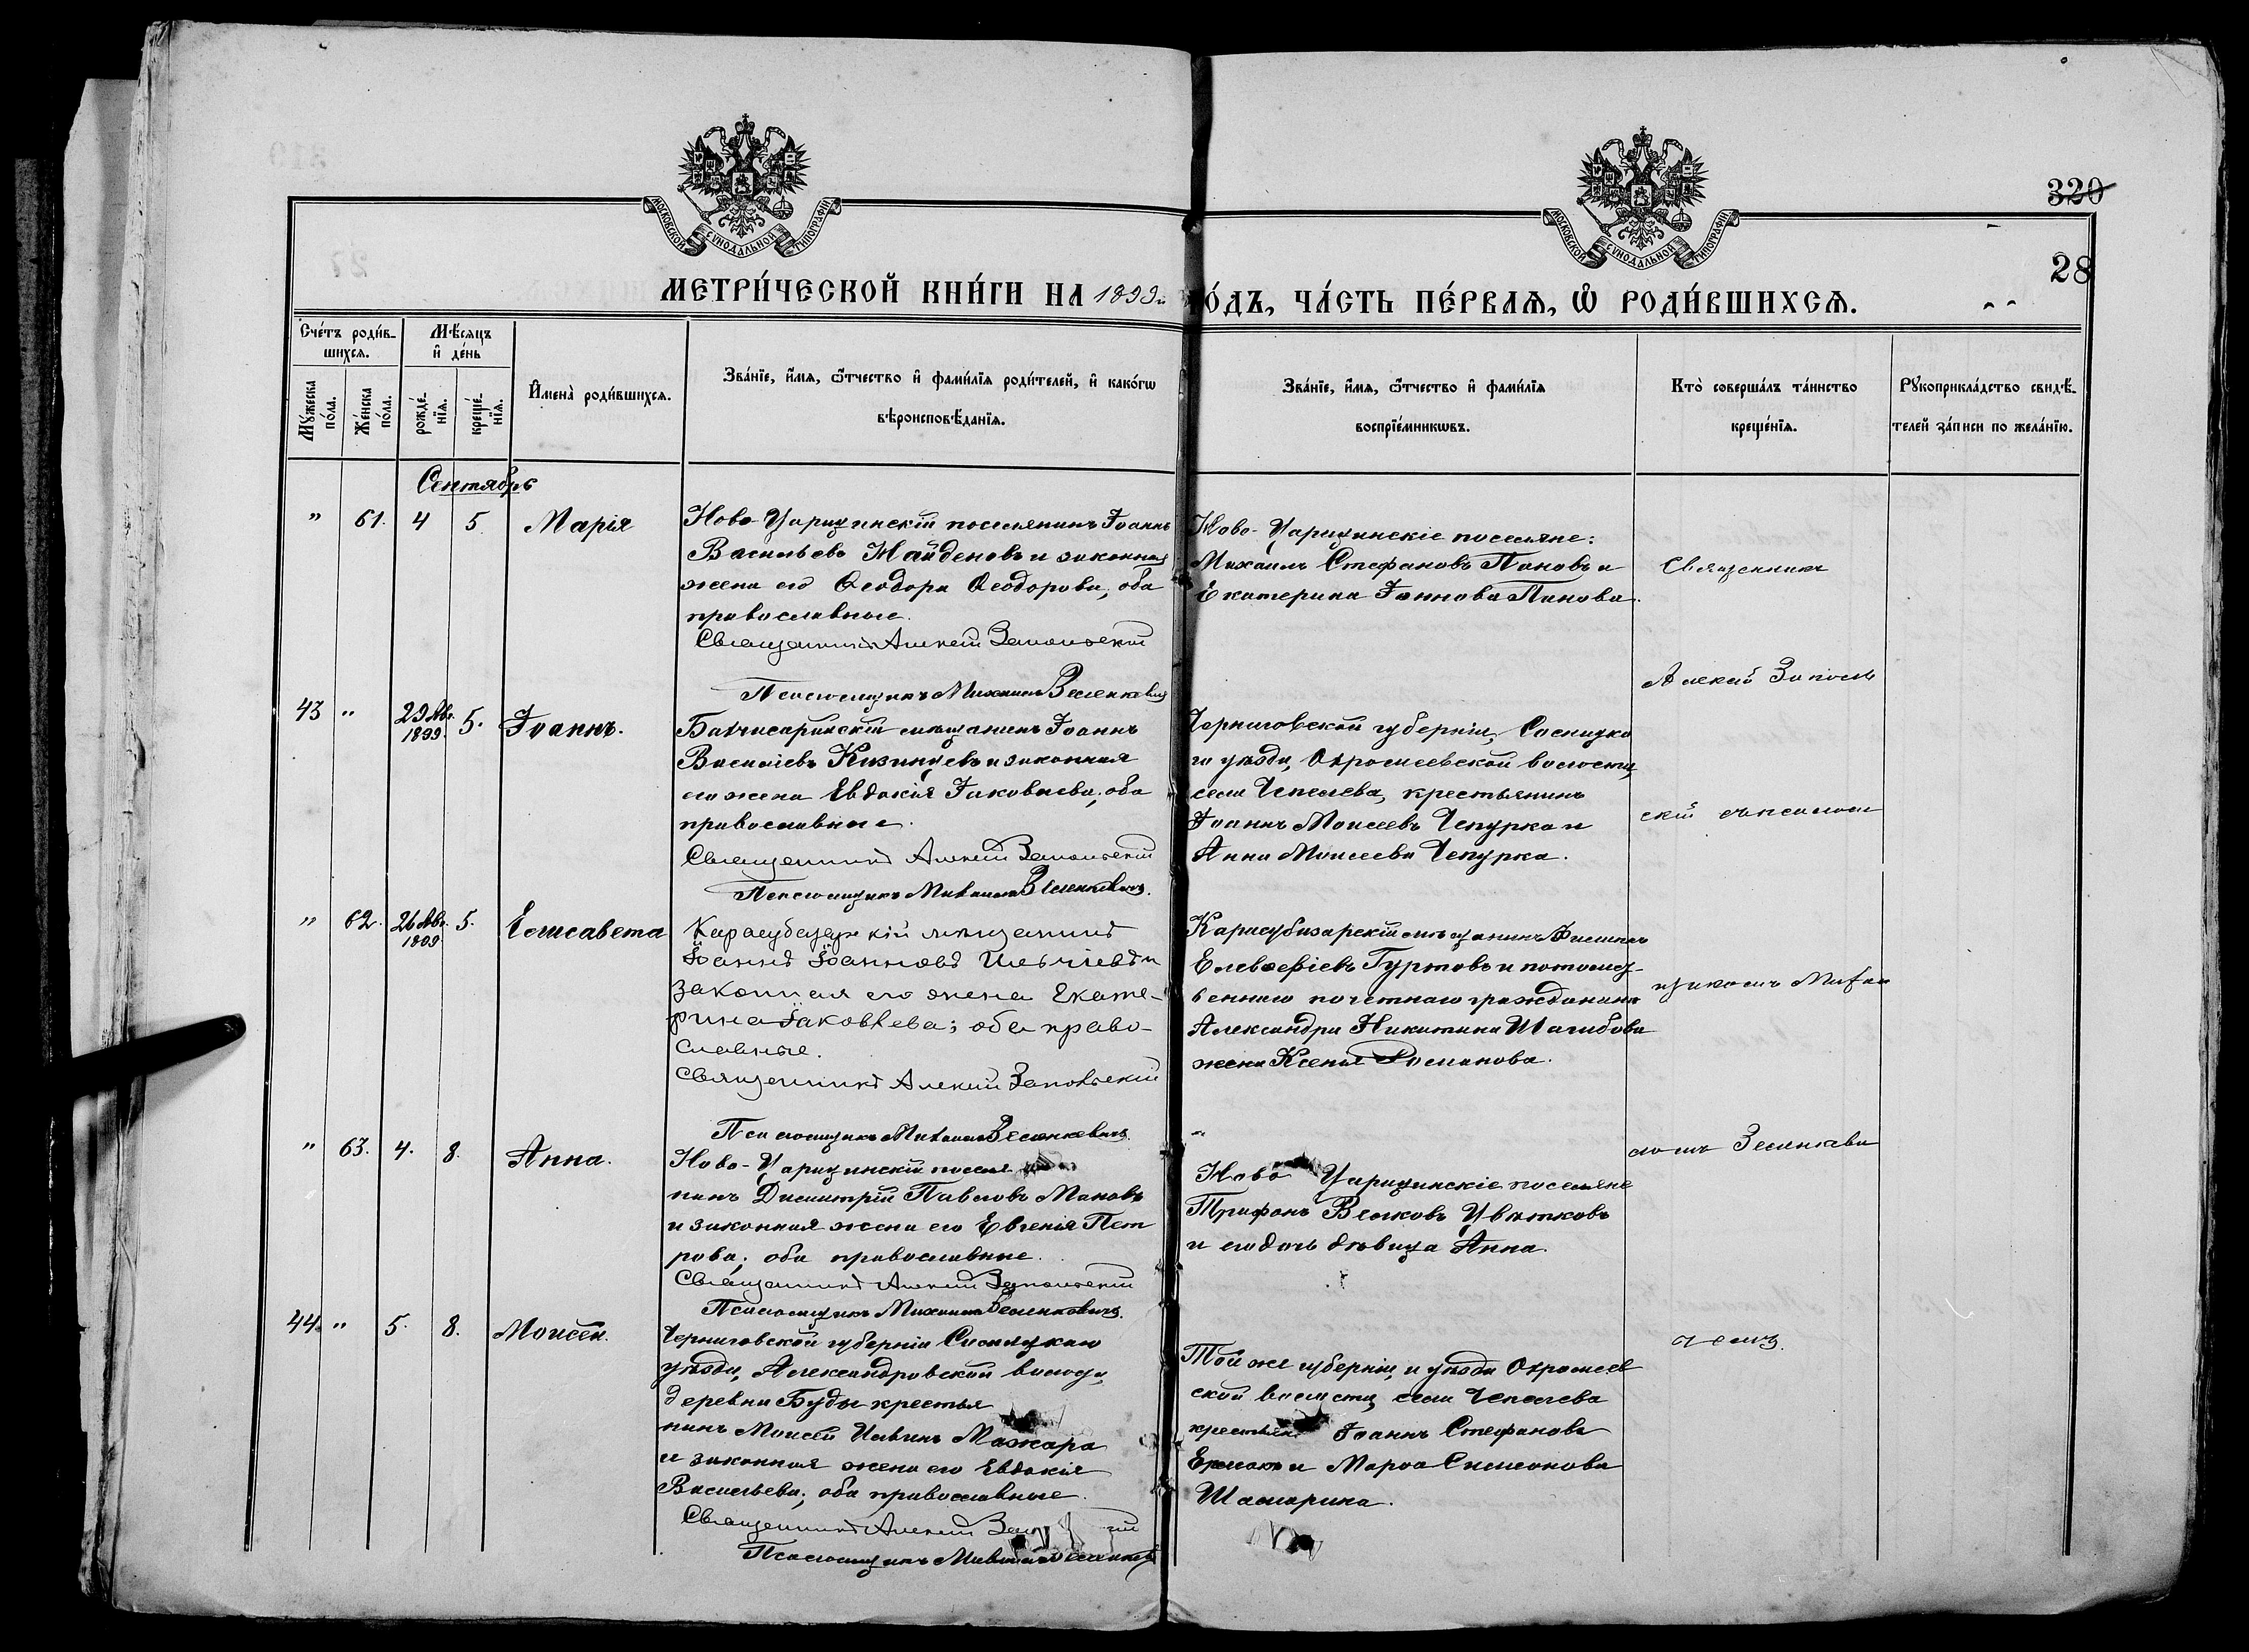 МОСКОВСКОЙ СѴНОДАЛЬНОЙ ТИПОГРАФІИ
МОСКОВСКОЙ СѴНОДАЛЬНОЙ ТИПОГРАФІИ
320
28
МЕТРИ́ЧЕСКОЙ КНИ́ГИ НА 1899й ГО́ДЪ, ЧА́СТЬ ПЕ́РВАѦ, Ѡ҆ РОДИ́ВШИХСѦ.
Сче́тъ роди́в-
шихсѧ.
Мꙋжеска по́ла.
Же́нска по́ла.
Мѣ́сѧцъ
и҆ де́нь
рожде́-
нїѧ.
креще́-
нїѧ.
И҆мена̀ роди́вшихсѧ.
Зва́нїе, и҆́мѧ, ѻ҆́тчество и҆ фами́лїѧ роди́телей, и҆ како́гѡ
вѣроисповѣ́данїѧ.
Зва́нїе, и҆́мѧ, ѻ҆́тчество и҆ фами́лїѧ
воспрїе́мникѡвъ.
Кто̀ соверша́лъ та́инство
креще́нїѧ.
Рꙋкоприкла́дство свидѣ́-
телей за́писи по жела́нїю.
Сентябрь
" 61. 4 5. Марія
Ново-Царицинскій поселянинъ Іоаннъ
Васильевъ Найденовъ и законная
жена его Ѳеодора Ѳеодорова, оба
православные.
Священникъ Алексій Запольскій
Псаломщикъ Михаилъ Зеленкевичъ
Ново-Царицинскіе поселяне:
Михаилъ Стефановъ Пановъ и
Екатерина Іоаннова Панова.
Священникъ
Алексій Заполь
скій съ псалом
щикомъ Михаи
ломъ Зеленкеви
чемъ.
43 " 29 Авг. 1899. 5. Іоаннъ.
Бахчисарайскій мѣщанинъ Іоаннъ
Василіевъ Кизинцевъ и законная
его жена Евдокія Іаковлева, оба
православные.
Священникъ Алексій Запольскій
Псаломщикъ Михаилъ Зеленкевичъ.
Черниговской губерніи, Сосницка
го уѣзда, Охромеевской волости,
села Чепелева, крестьянинъ
Іоаннъ Моисеевъ Чепурка и
Анна Моисеева Чепурка.
" 62. 26 Авг. 1899 5. Елисавета
Карасубазарскій мѣщанинъ
Іоаннъ Іоанновъ Ильичевъ и
законная его жена Екате-
рина Іаковлева; оба право-
славные.
Священникъ Алексій Запольскій
Псаломщикъ Михаилъ Зеленкевичъ.
Карасубазарскій мѣщанинъ
Елевѳеріевъ Гуртовъ и потомст-
веннаго почетнаго гражданина
Александра Никитина Шагибова
жена Ксенія Романова.
" 63. 4. 8. Анна.
Ново-Царицинскій поселя
нинъ Димитрій Павловъ Мановъ
и законная жена его Евгенія Пет
рова; оба православные.
Священникъ Алексій Запольскій
Псаломщикъ Михаилъ Зеленкевичъ.
Ново Царицинскіе поселяне
Трифонъ Велковъ Цвѣтковъ
и его дочь дѣвица Анна.
44. " 5. 8. Моисей.
Черниговской губерніи Сосницкаго
уѣзда, Александровской волости,
деревни Буды крестья
нинъ Моисей Иавинъ Мажара
и законная жена его Евдокія
Васильева; оба православные.
Священникъ Алексій
Псаломщикъ Михаилъ
Той же губерніи, и уѣзда Охромеев
ской волости, села Чепелева
крестьяне Іоаннъ Стефановъ
Ермакъ и Марѳа Симеонова
Шамарина.